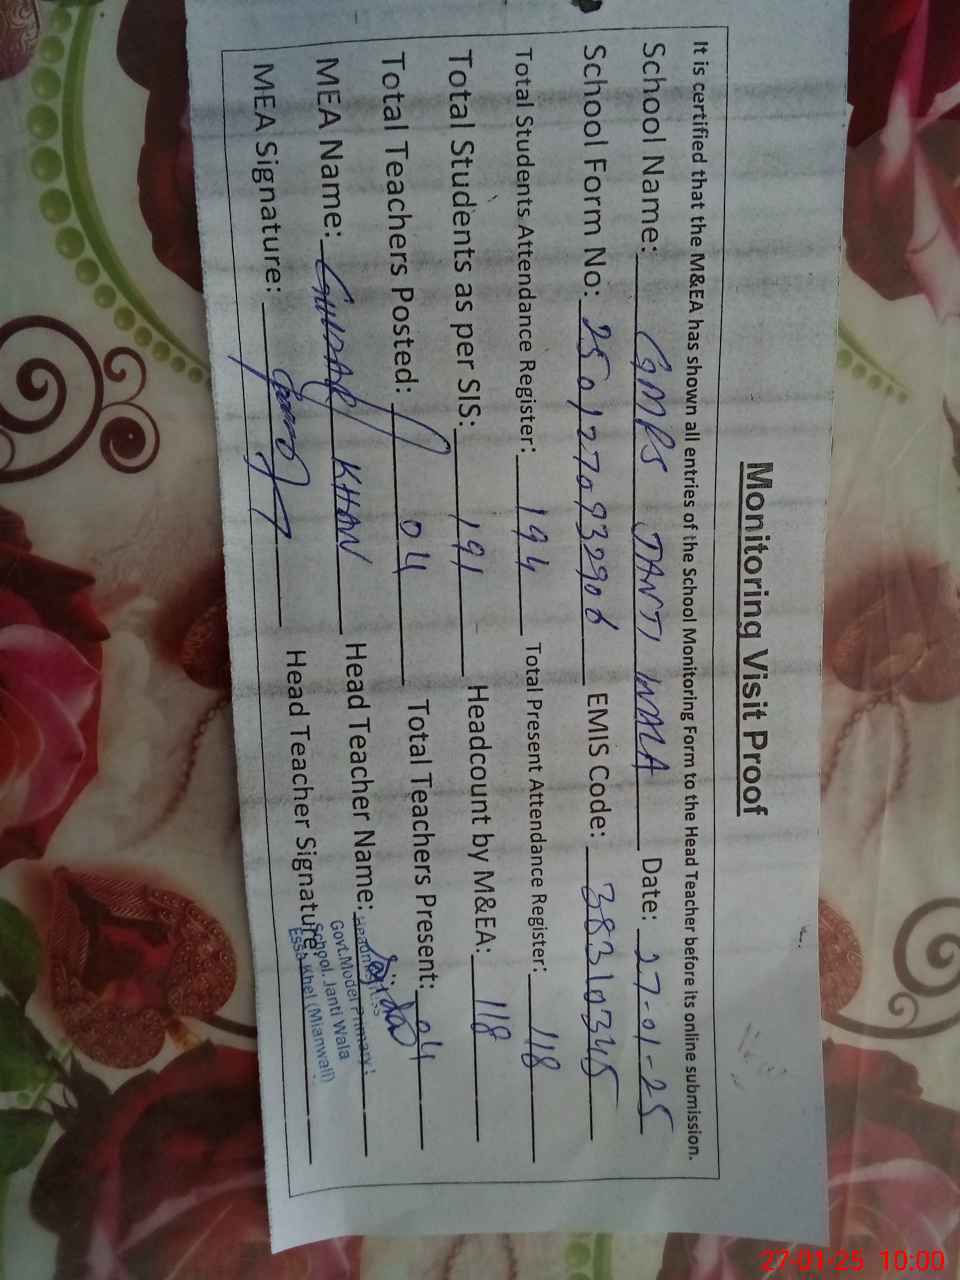 Monitoring Visit Proof
It is certified that the M&EA has shown all entries of the School Monitoring Form to the Head Teacher before its online submission.
School Name: GMPS JANTI WALA Date: 27-01-25
School Form No: 2501270932908 EMIS Code: 38310345
Total Students Attendance Register: 194 Total Present Attendance Register: 118
Total Students as per SIS: 191 Headcount by M&EA: 118
Total Teachers Posted: 04 Total Teachers Present: 04
MEA Name: GULDAR KHAN Head Teacher Name: Sajida
MEA Signature: Head Teacher Signature
Headmistress
Govt. Model Primary
School, Janti Wala
Essa Khel (Mianwali)
27-01-25 10:00